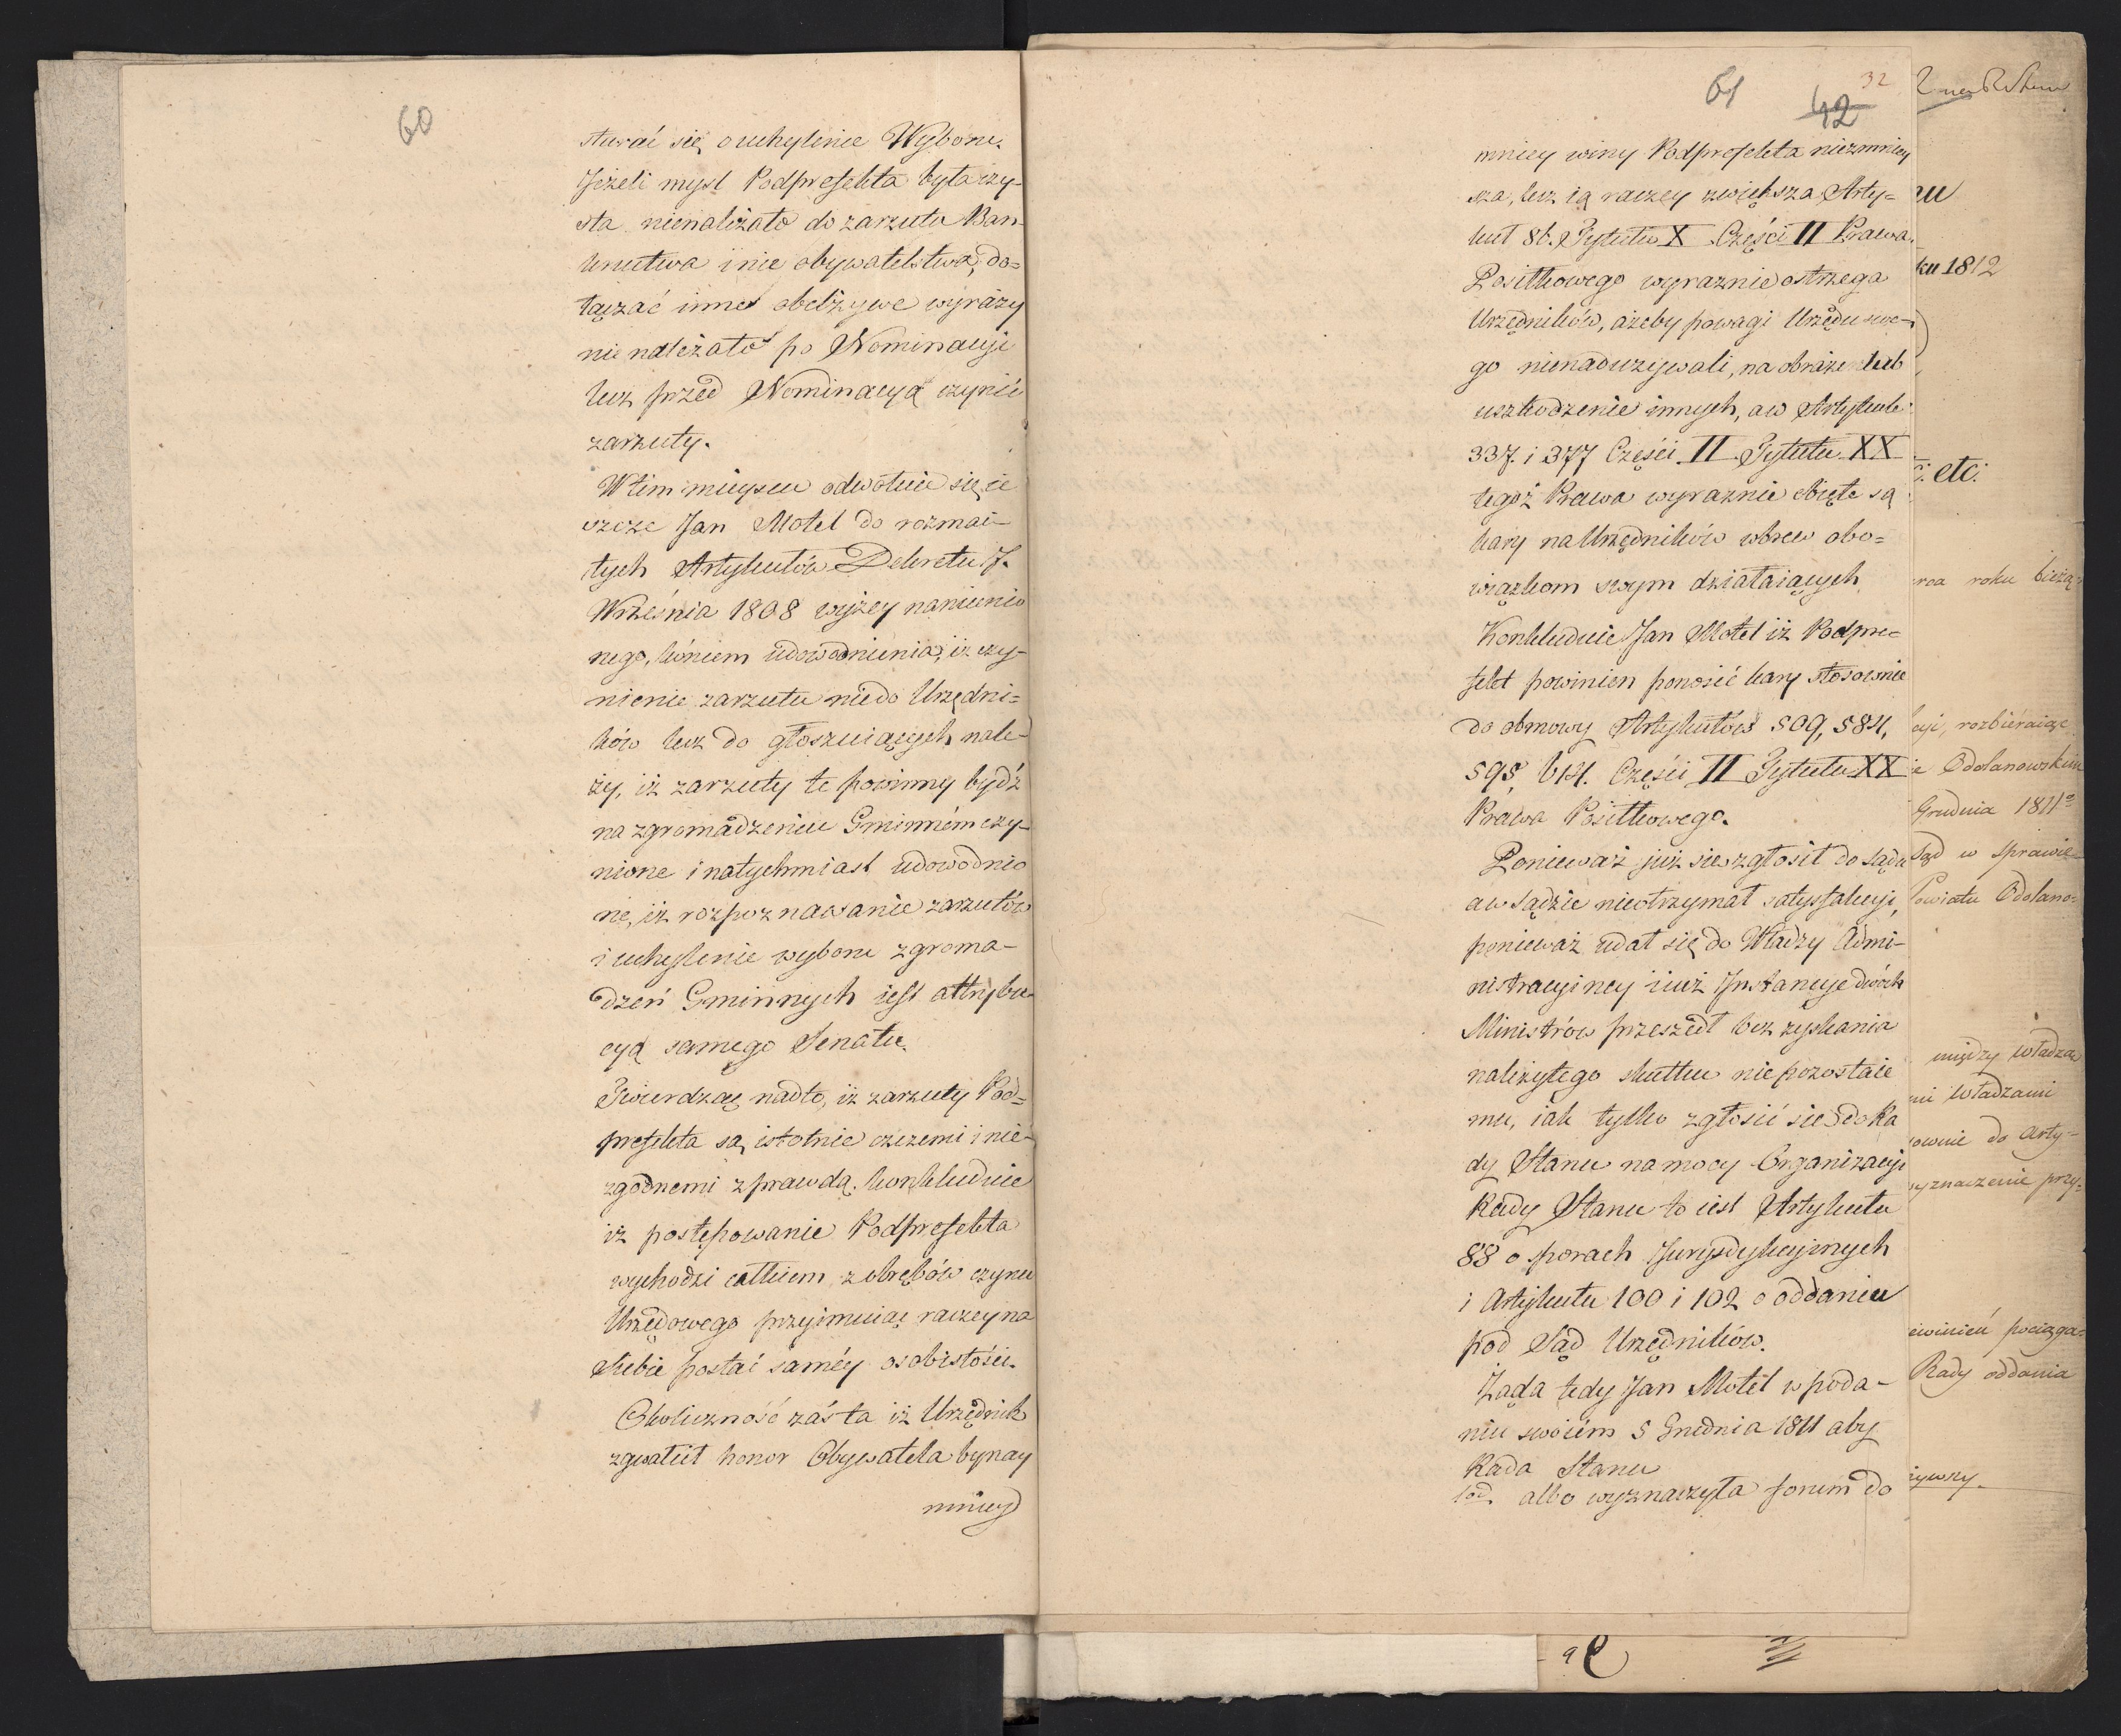 60
starać się o uchylenie Wyboru.
Jeżeli mysl Podprefekta była czy-
sta nienależało do zarzutu Ban-
kructwa i nie obywatelstwa, do-
łączać innes obelżywe wyrazy
nie należało po Nominacyi
lecz przed Nominacyą czynić
zarzuty.
W tim mieyscu odwołuie się ie
szcze Jan Motel do rozmai-
tych Artykułów Dekretu 7.
Września 1808 wyżey namienio
nego, końcem udowodnienia, iż czy-
nienie zarzutu nie do Urzędni=
ków lecz do głosuiących nale-
ży, iż zarzuty te powinny bydź
na zgromadzeniu Gminném czy-
nione i natychmiast udowodnio
ne, iż rozpoznawanie zarzutów
i uchylenie wyboru zgroma-
dzeń Gminnych iest attrybu-
cyą samego Senatu.
Twierdząc nadto, iż zarzuty Pod=
prefekta są istotnie czczemi i nie-
zgodnemi z prawdą. konkluduie
iż postępowanie Podprefekta
wychodzi całkiem z obrębów czynu
Urzędowego przyimuiąc raczey na
siebie postać saméy osobistości.
Okoliczność zaś ta iż Urzędnik
zgwałcił honor Obywatela bynay
mniey
61
42
32
mniey winy Podprefekta niezmniey
sza, lecz ią raczey zwiększa Arty=
kuł 86. Tytułu X Części II Prawa
Posiłkowego wyraznie ostrzega
Urzędników, ażeby powagi Urzędu swe-
go nienadużywali, na obraże lub
uszkodzenie innych, a w Artykule
337. i 377 Części II Tytułu XX
tegoż Prawa wyraznie obięte są
kary na Urzędników wbrew obo=
wiązkom swym działaiących
Konkluduie Jan Motel iż Podpre=
fekt powinien ponosić kary stosownie
do obmowy Artykułów 509, 584,
595, 614. Części II Tytułu XX
Prawa Posiłkowego.
Ponieważ już sie zgłosił do sądu
a w sądzie nieotrzymał satysfakcyi,
ponieważ udał się do Władzy Admi-
nistracyiney i iuż Instancye dwóch
Ministrów przeszedł bez zyskania
należytego skutku nie pozostaie
mu, iak tylko zgłosić sie do Ra
dy Stanu na mocy Organizacyi
Rady Stanu to iest Artykułu
88 o sporach Jurysdykcyinych
i Artykułu 100 i 102 o oddaniu
pod Sąd Urzędników.
Żąda tedy Jan Motel w poda-
niu swoiém 5 Grudnia 1811 aby
Rada Stanu
1od albo wyznaczyła forum do
nu
ku 1812
etc:
rca roku bieżą=
cyi, rozbieraiąc
ie Odolanowskim
Grudnia 1811
Sąd w sprawie
Powiatu Odolano=
między władzą
mi Władzami
sownie do Arty=
wyznaczenie przy=
ewinień pociąga=
Rady oddania
żywszy.